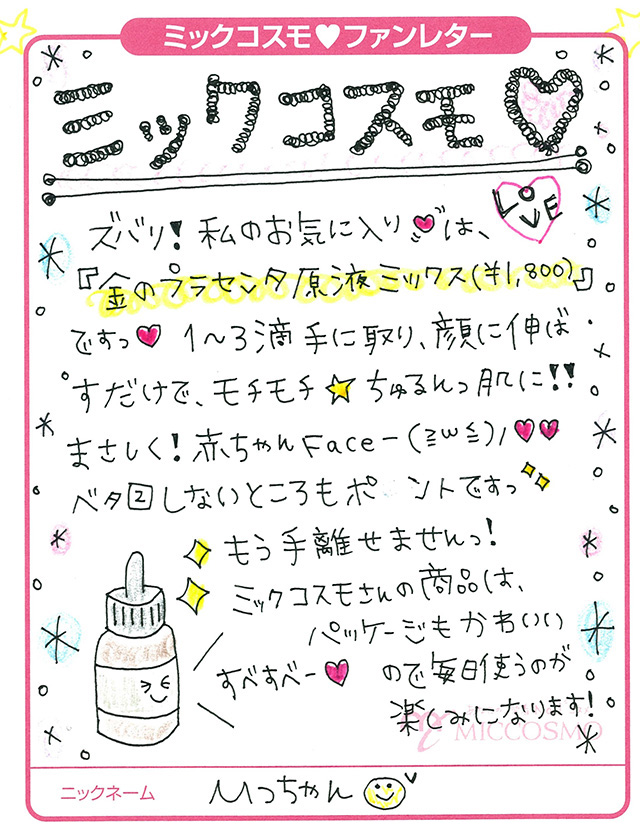 ミックコスモ♥ファンレター
ミックコスモ♡
LOVE
ズバリ!私のお気に入り♥は、
『金のプラセンタ原液ミックス(¥1,800)』
ですっ♥ 1〜3滴手に取り、顔に伸ば
すだけで、モチモチ☆ちゅるんっ肌に!!
まさしく!赤ちゃんFaceー(≧ω≦)ノ♥♥
ベタ2しないところもポ ントですっ
もう手離せませんっ!
ミックコスモさんの商品は、
パッケージもかわいい
ので毎日使うのが
楽しみになります!
すべすべー♥
MICCOSMO
ニックネーム
Mっちゃん